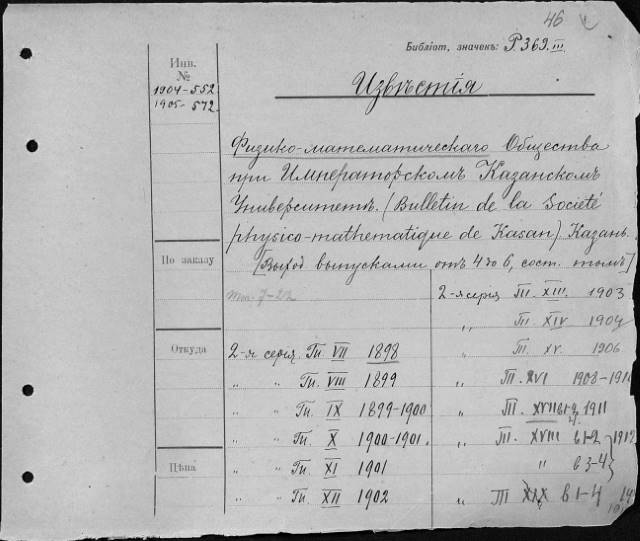 46
Библіот. значекъ: P369.III
Инв.
№
1904-552
1905-572.
Извѣстія
Физико-математическаго Общества
при Императорскомъ Казанскомъ
Университетѣ. (Bulletin de la Societé
physico-mathematique de Kasan). Казань.
[Выход выпусками отъ 4 до 6, сост. томъ]
По заказу
тт. 7-22
2-я серія Т. XIII. 1903
„ Т. XIV 1904
„ Т. XV. 1906
Откуда
2-я серія Т. VII 1898
„ „ Т. VIII 1899
„ Т. XVI 1908-191
„ „ Т. IX 1899-1900
„ Т. XVII в1-2 1911
4.
„ „ Т. X 1900-1901.
„ Т. XVIII в1-2 1912
Цѣна
„ „ Т. XI 1901
„ в3-4
„ „ Т. XII 1902
„ Т XIX в1-4